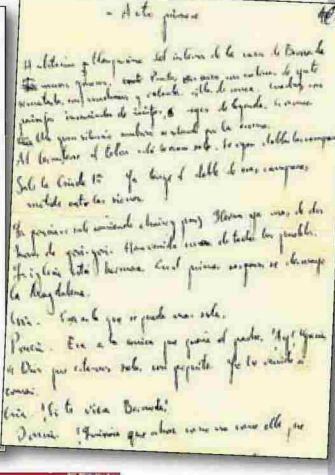 - Acto primero
Habitación blanquísima del interior de la casa de Bernarda
muros gruesos, puertas en arco con cortinas de yute
rematadas con madroños y volantes. silla de anea. cuadros con
paisajes inverosímiles de ninfas, o reyes de leyenda. Es verano
Un gran silencio umbroso se extiende por la escena.
Al levantarse el telón está la escena sola. Se oyen doblar las campanas
Sale la Criada 1ª Ya tengo el doble de esas campanas
metido entre las sienes.
La poncia sale comiendo chorizo y pan) Llevan ya más de dos
horas de gori-gori. Han venido curas de todos los pueblos.
La iglesia está hermosa. En el primer responso se desmayó
la Magdalena.
Cria. Es la que se queda más sola.
Poncia. Era a la única que quería el padre. ¡Ay! Gracias
a Dios que estamos solas un poquito. Yo he venido a
comer.
Cria. ¡Si te viera Bernarda!
Poncia. ¡Quisiera que ahora como no come ella que